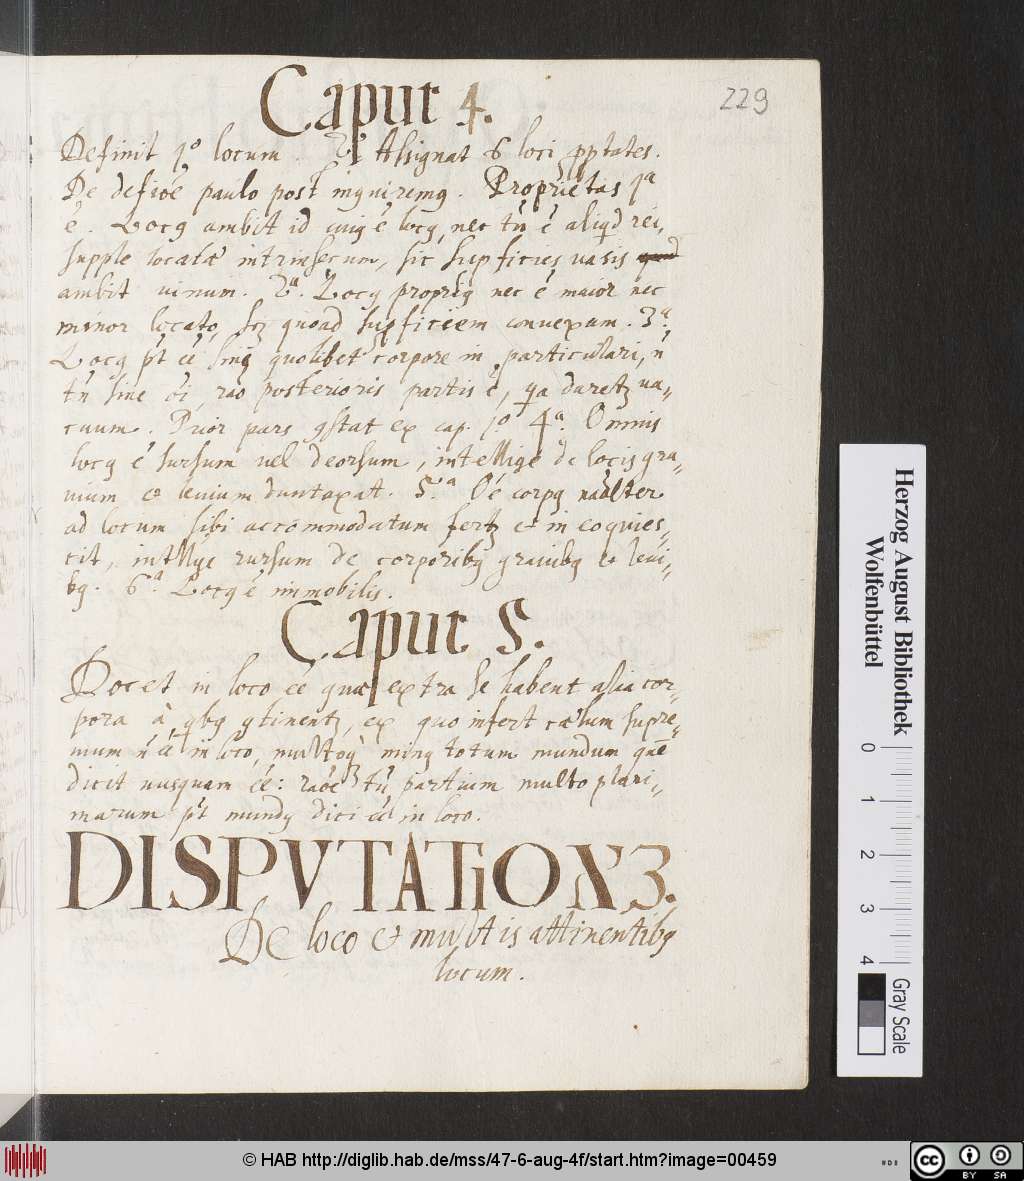 229
Caput 4.
Definit 1º locum. 2º Assignat 6 loci pptates.
De defioē paulo post inquiremꝯ. Proprietas 1ª
ē. Locꝯ ambit id cuiꝯ ē locꝯ, nec tn̄ ē aliqd rei,
supple locatæ intrinsecum, sic supficies uasis
ambit uinum. 2ª. Locꝯ propriꝯ nec ē maior nec
minor locato, scꝫ quoad supficiem conuexam. 3ª.
Locꝯ pt ēē sine quolibet corpore in particulari, n̄
tn̄ sine oi, rāo posterioris partis ē, qa daretꝛ ua-
cuum. Prior pars ꝯstat ex cap. 1º 4ª. Omnis
locꝯ ē sursum uel deorsum, intellige de locis gra-
uium et leuium duntaxat. 5ª Oē corpꝯ nāālter
ad locum sibi accommodatum fertꝛ et in eo quies-
cit, intllige rursum de corporibꝯ grauibꝯ et leui-
bꝯ. 6ª. Locꝯ ē immobilis.
Caput 5.
Docet in loco ēē quæ extra se habent alia cor-
pora à qbꝯ ꝯtinentꝛ, ex quo infert cælum supre-
mum n̄ ēē in loco, multoqꝫ minꝯ totum mundum quē
dicit nusquam ēē: rāoē tn̄ partium multo pluri-
marum pt mundꝯ dici ēē in loco.
DISPVTATIO X3.
De loco et multis attinentibꝯ
locum.
Herzog August Bibliothek
Wolfenbüttel
0 1 2 3 4
Gray Scale
© HAB http://diglib.hab.de/mss/47-6-aug-4f/start.htm?image=00459
WDB
cc BY SA